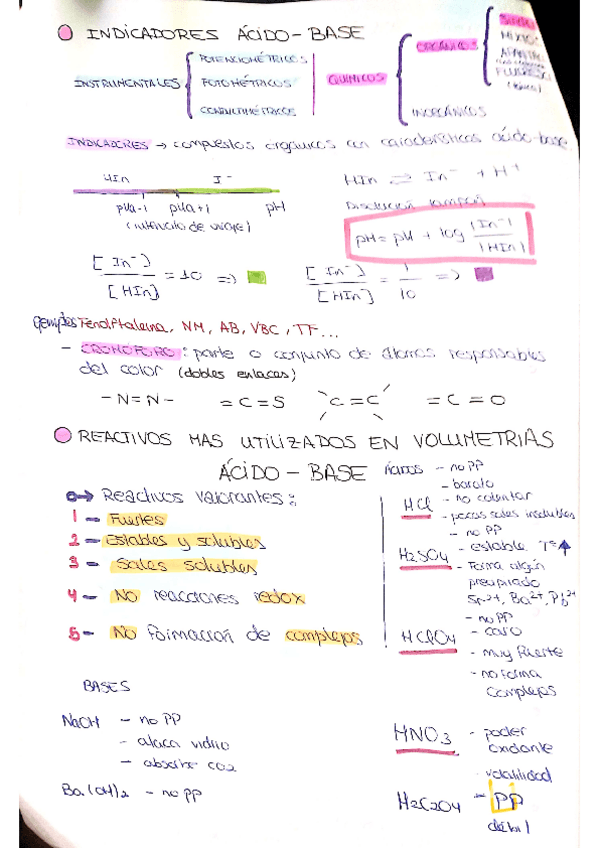 INDICADORES ÁCIDO-BASE
INSTRUMENTALES
POTENCIOMÉTRICOS
FOTOMÉTRICOS
CONDUCTIMÉTRICOS
QUÍMICOS
ORGÁNICOS
INORGÁNICOS
INDICADORES → compuestos orgánicos con características ácido-base
HIn I⁻
pKa-1 pKa+1 pH
(intervalo de viraje)
HIn ⇌ In⁻ + H⁺
Disolución tampón
pH = pK + log |In⁻| / |HIn|
[In⁻] / [HIn] = 10 =>
[In⁻] / [HIn] = 1 / 10 =>
ejemplos Fenolftaleina, NM, AB, VBC, TF...
- CROMÓFORO: parte o conjunto de átomos responsables
del color (dobles enlaces)
-N=N- =C=S C=C =C=O
REACTIVOS MAS UTILIZADOS EN VOLUMETRIAS
ÁCIDO-BASE
Reactivos valorantes:
1 - Fuertes
2 - Estables y solubles
3 - Sales solubles
4 - NO reacciones redox
5 - NO Formación de complejos
BASES
NaOH - no PP
- ataca vidrio
- absorbe CO2
Ba(OH)2 - no PP
ÁCIDOS
HCl - no PP
- barato
- no calentar
- pocas sales insolubles
H2SO4 - no PP
- estable Tª↑
- Forma algún
precipitado
Sr²⁺, Ba²⁺, Pb²⁺
HClO4 - no PP
- caro
- muy fuerte
- no forma
complejos
HNO3 - poder
oxidante
- volatilidad
H2C2O4 - PP
débil